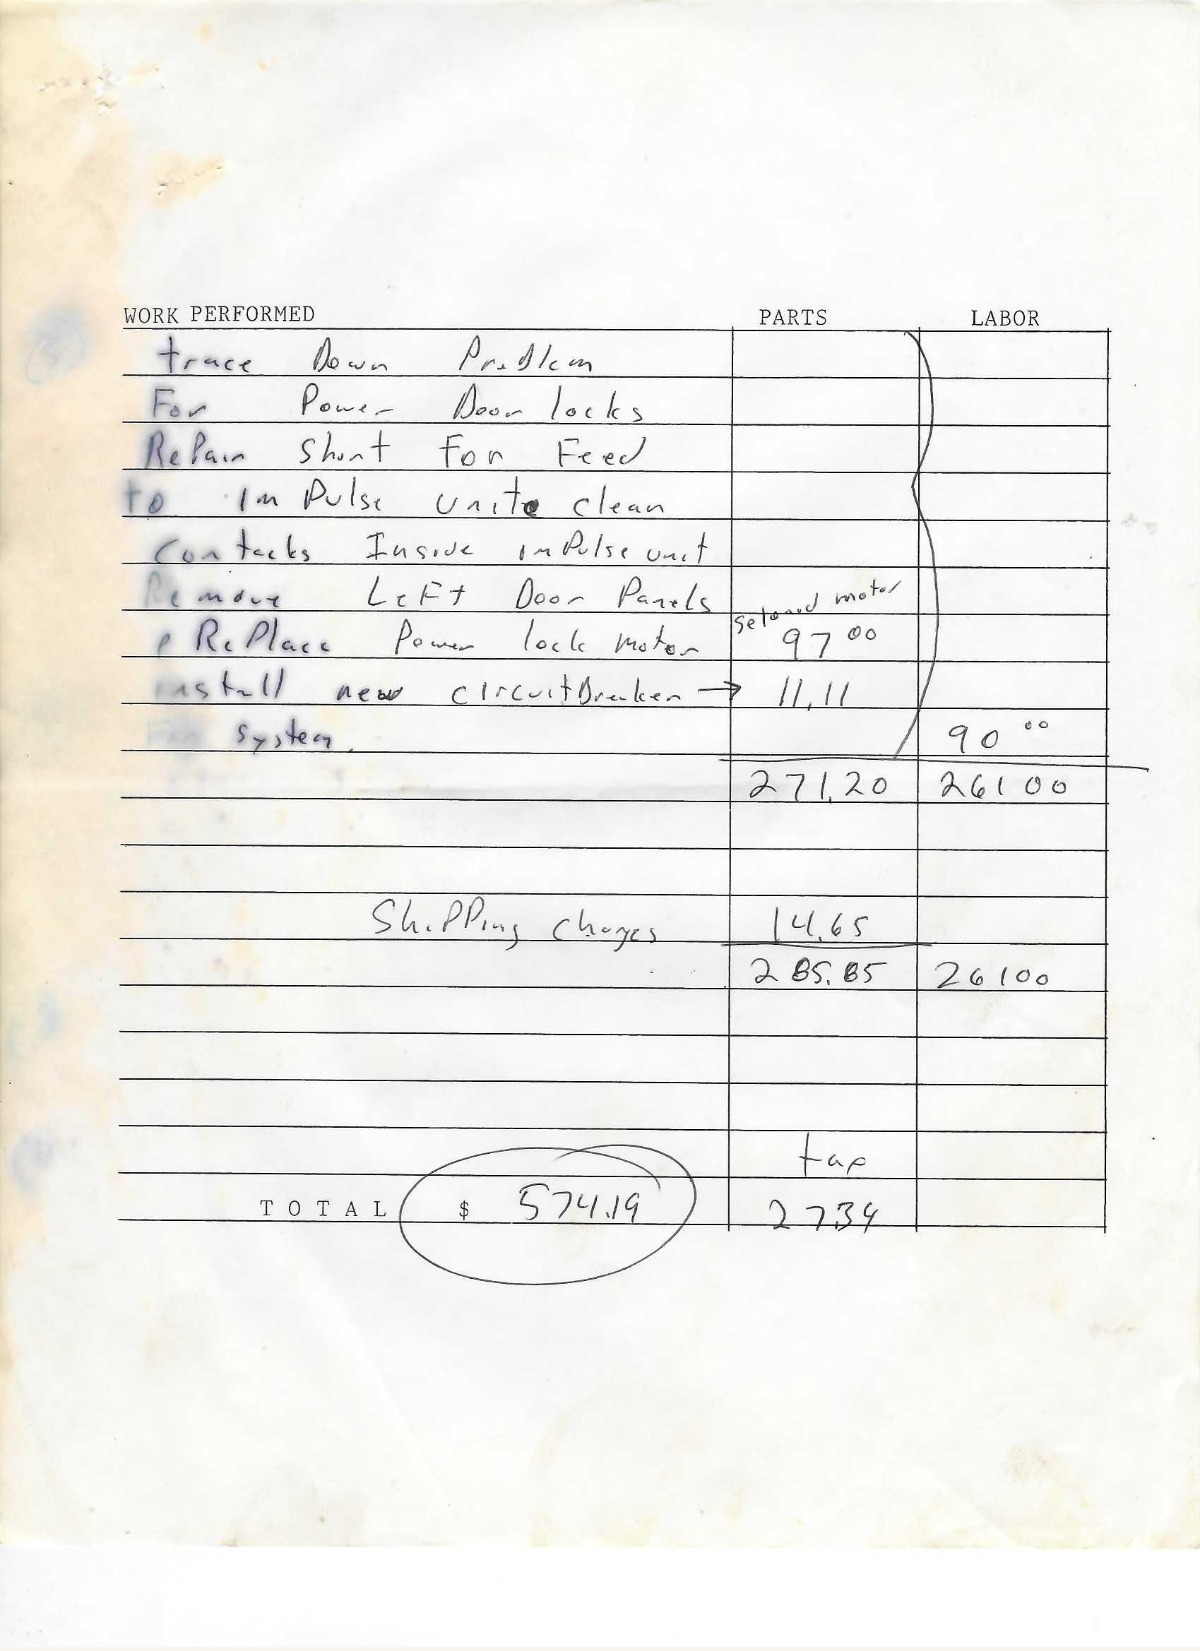 WORK PERFORMED PARTS LABOR
trace Down Problem
For Power Door locks
Repair Short For Feed
to Im Pulse unite clean
Contacks Inside imPulse unit
Remove Left Door Panels
Seloned motor
& RePlace Power lock motor 97 00
install new circuit Breaker → 11.11
For system. 90 00
271.20 261 00
Shipping charges 14.65
285.85 261 00
tax
TOTAL $ 574.19 27.34